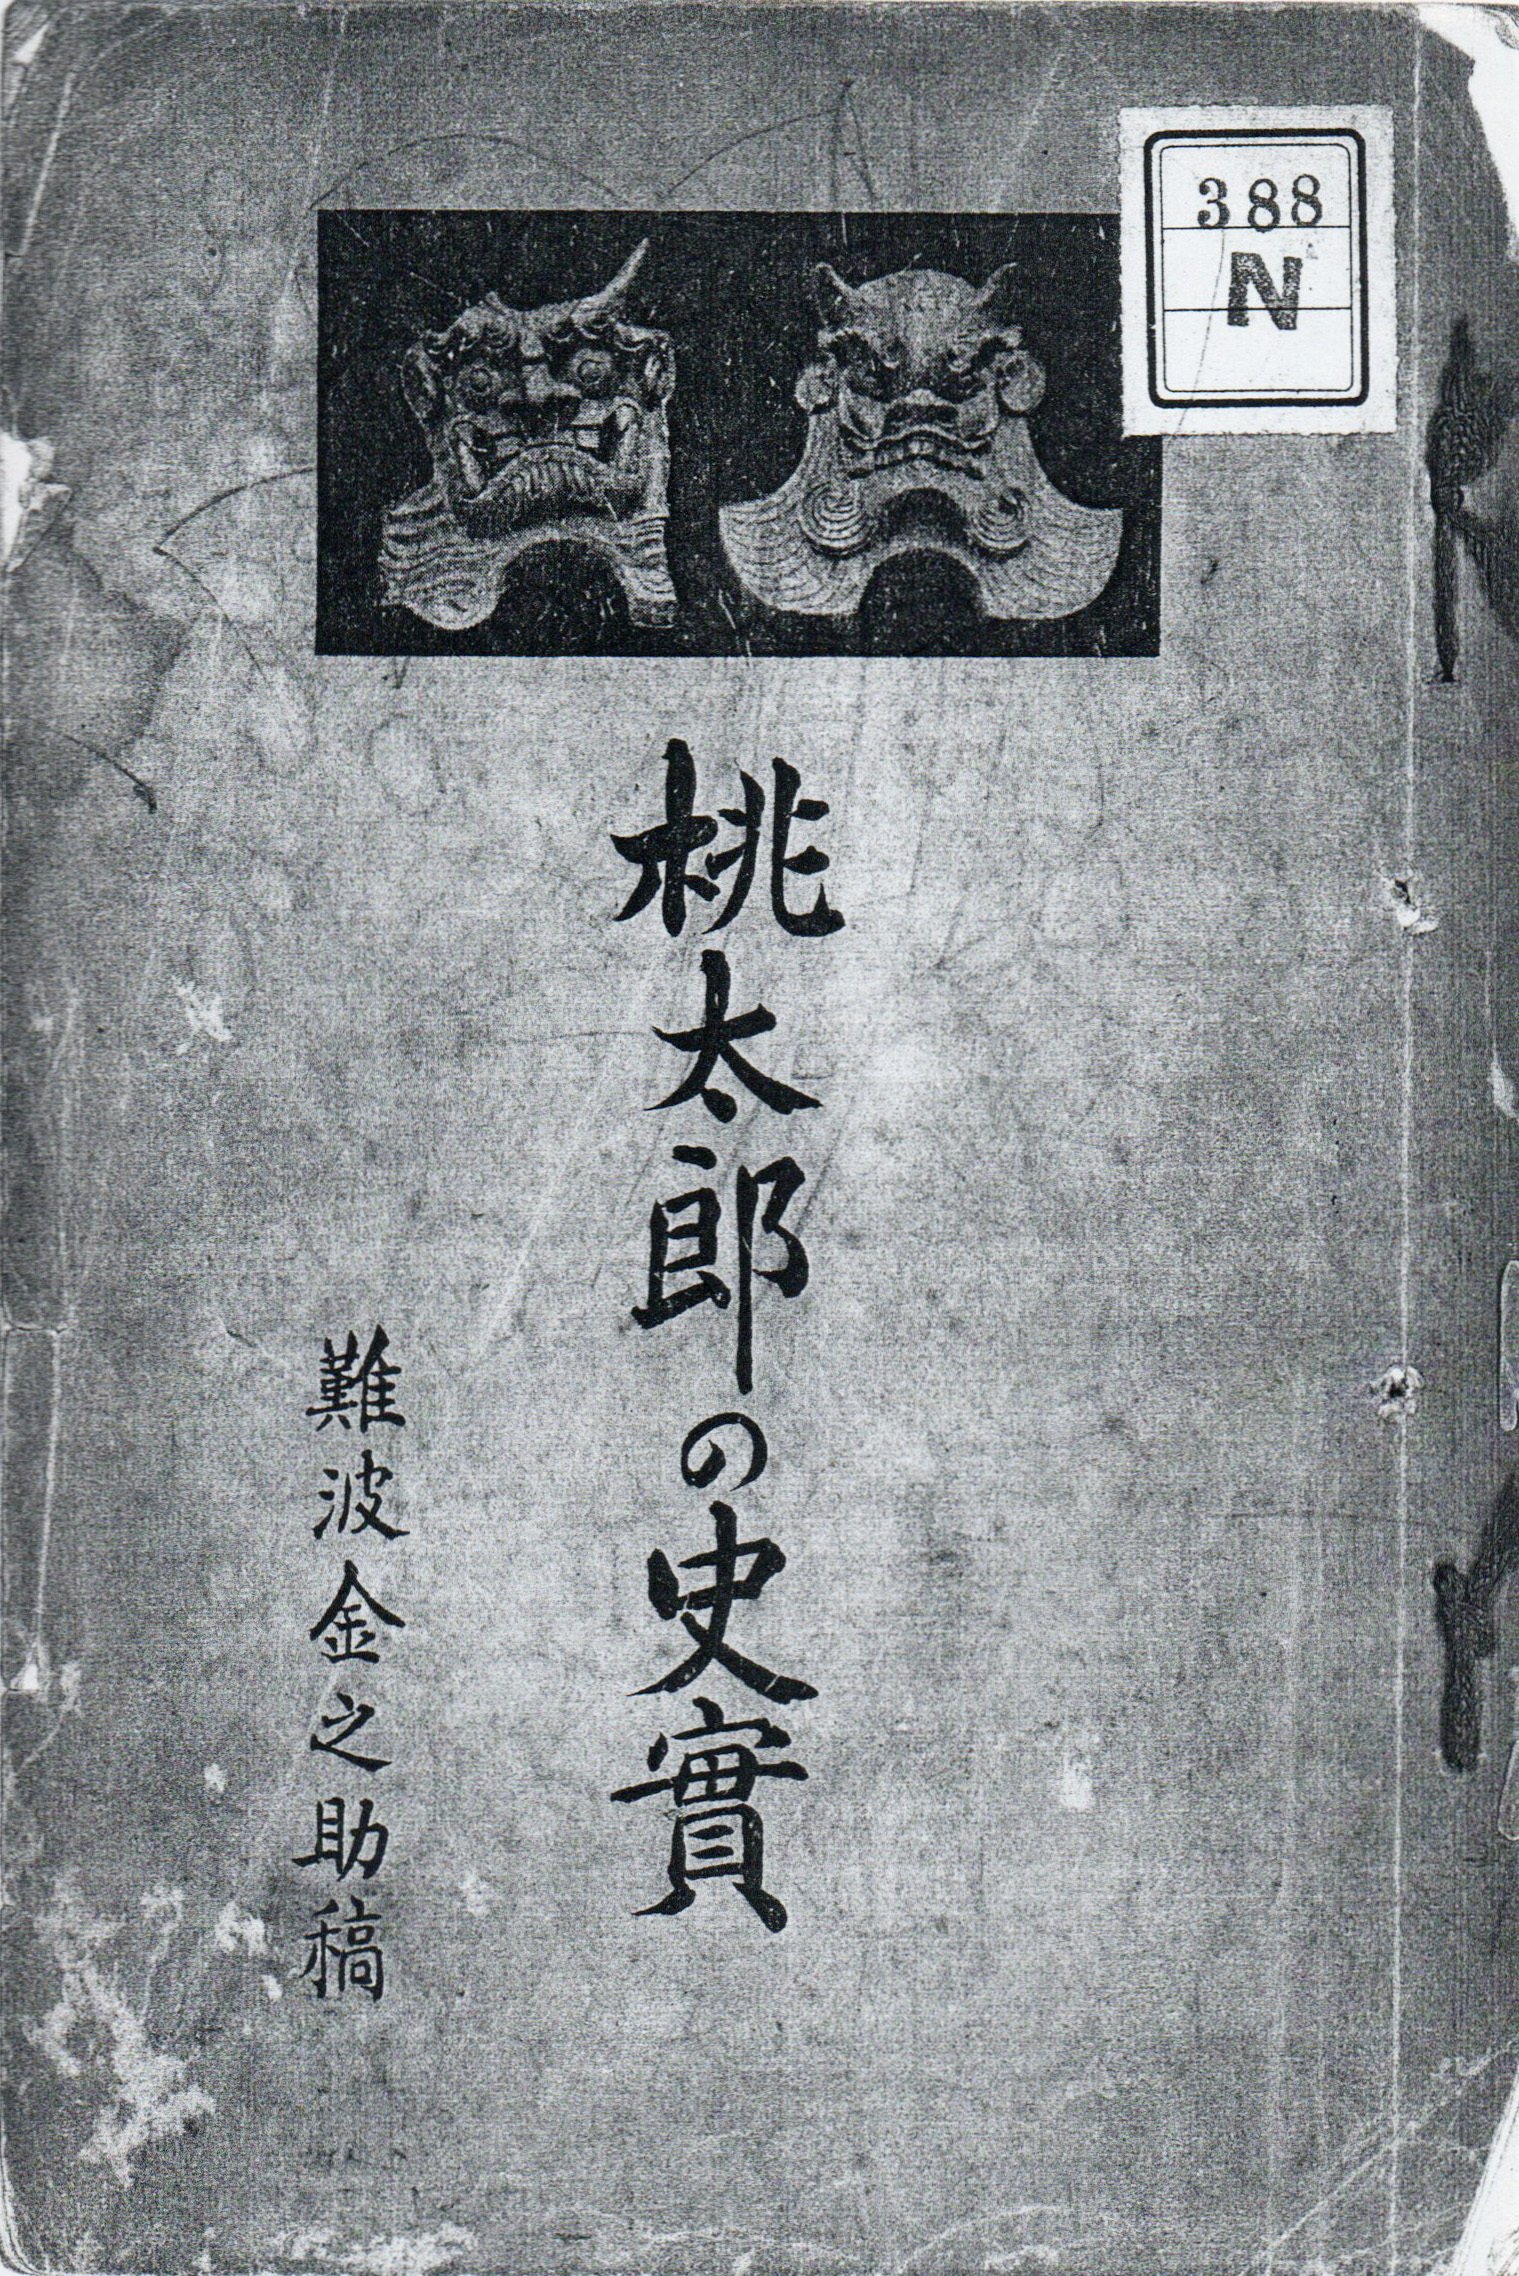 388
N
桃太郎の史實
難波金之助稿